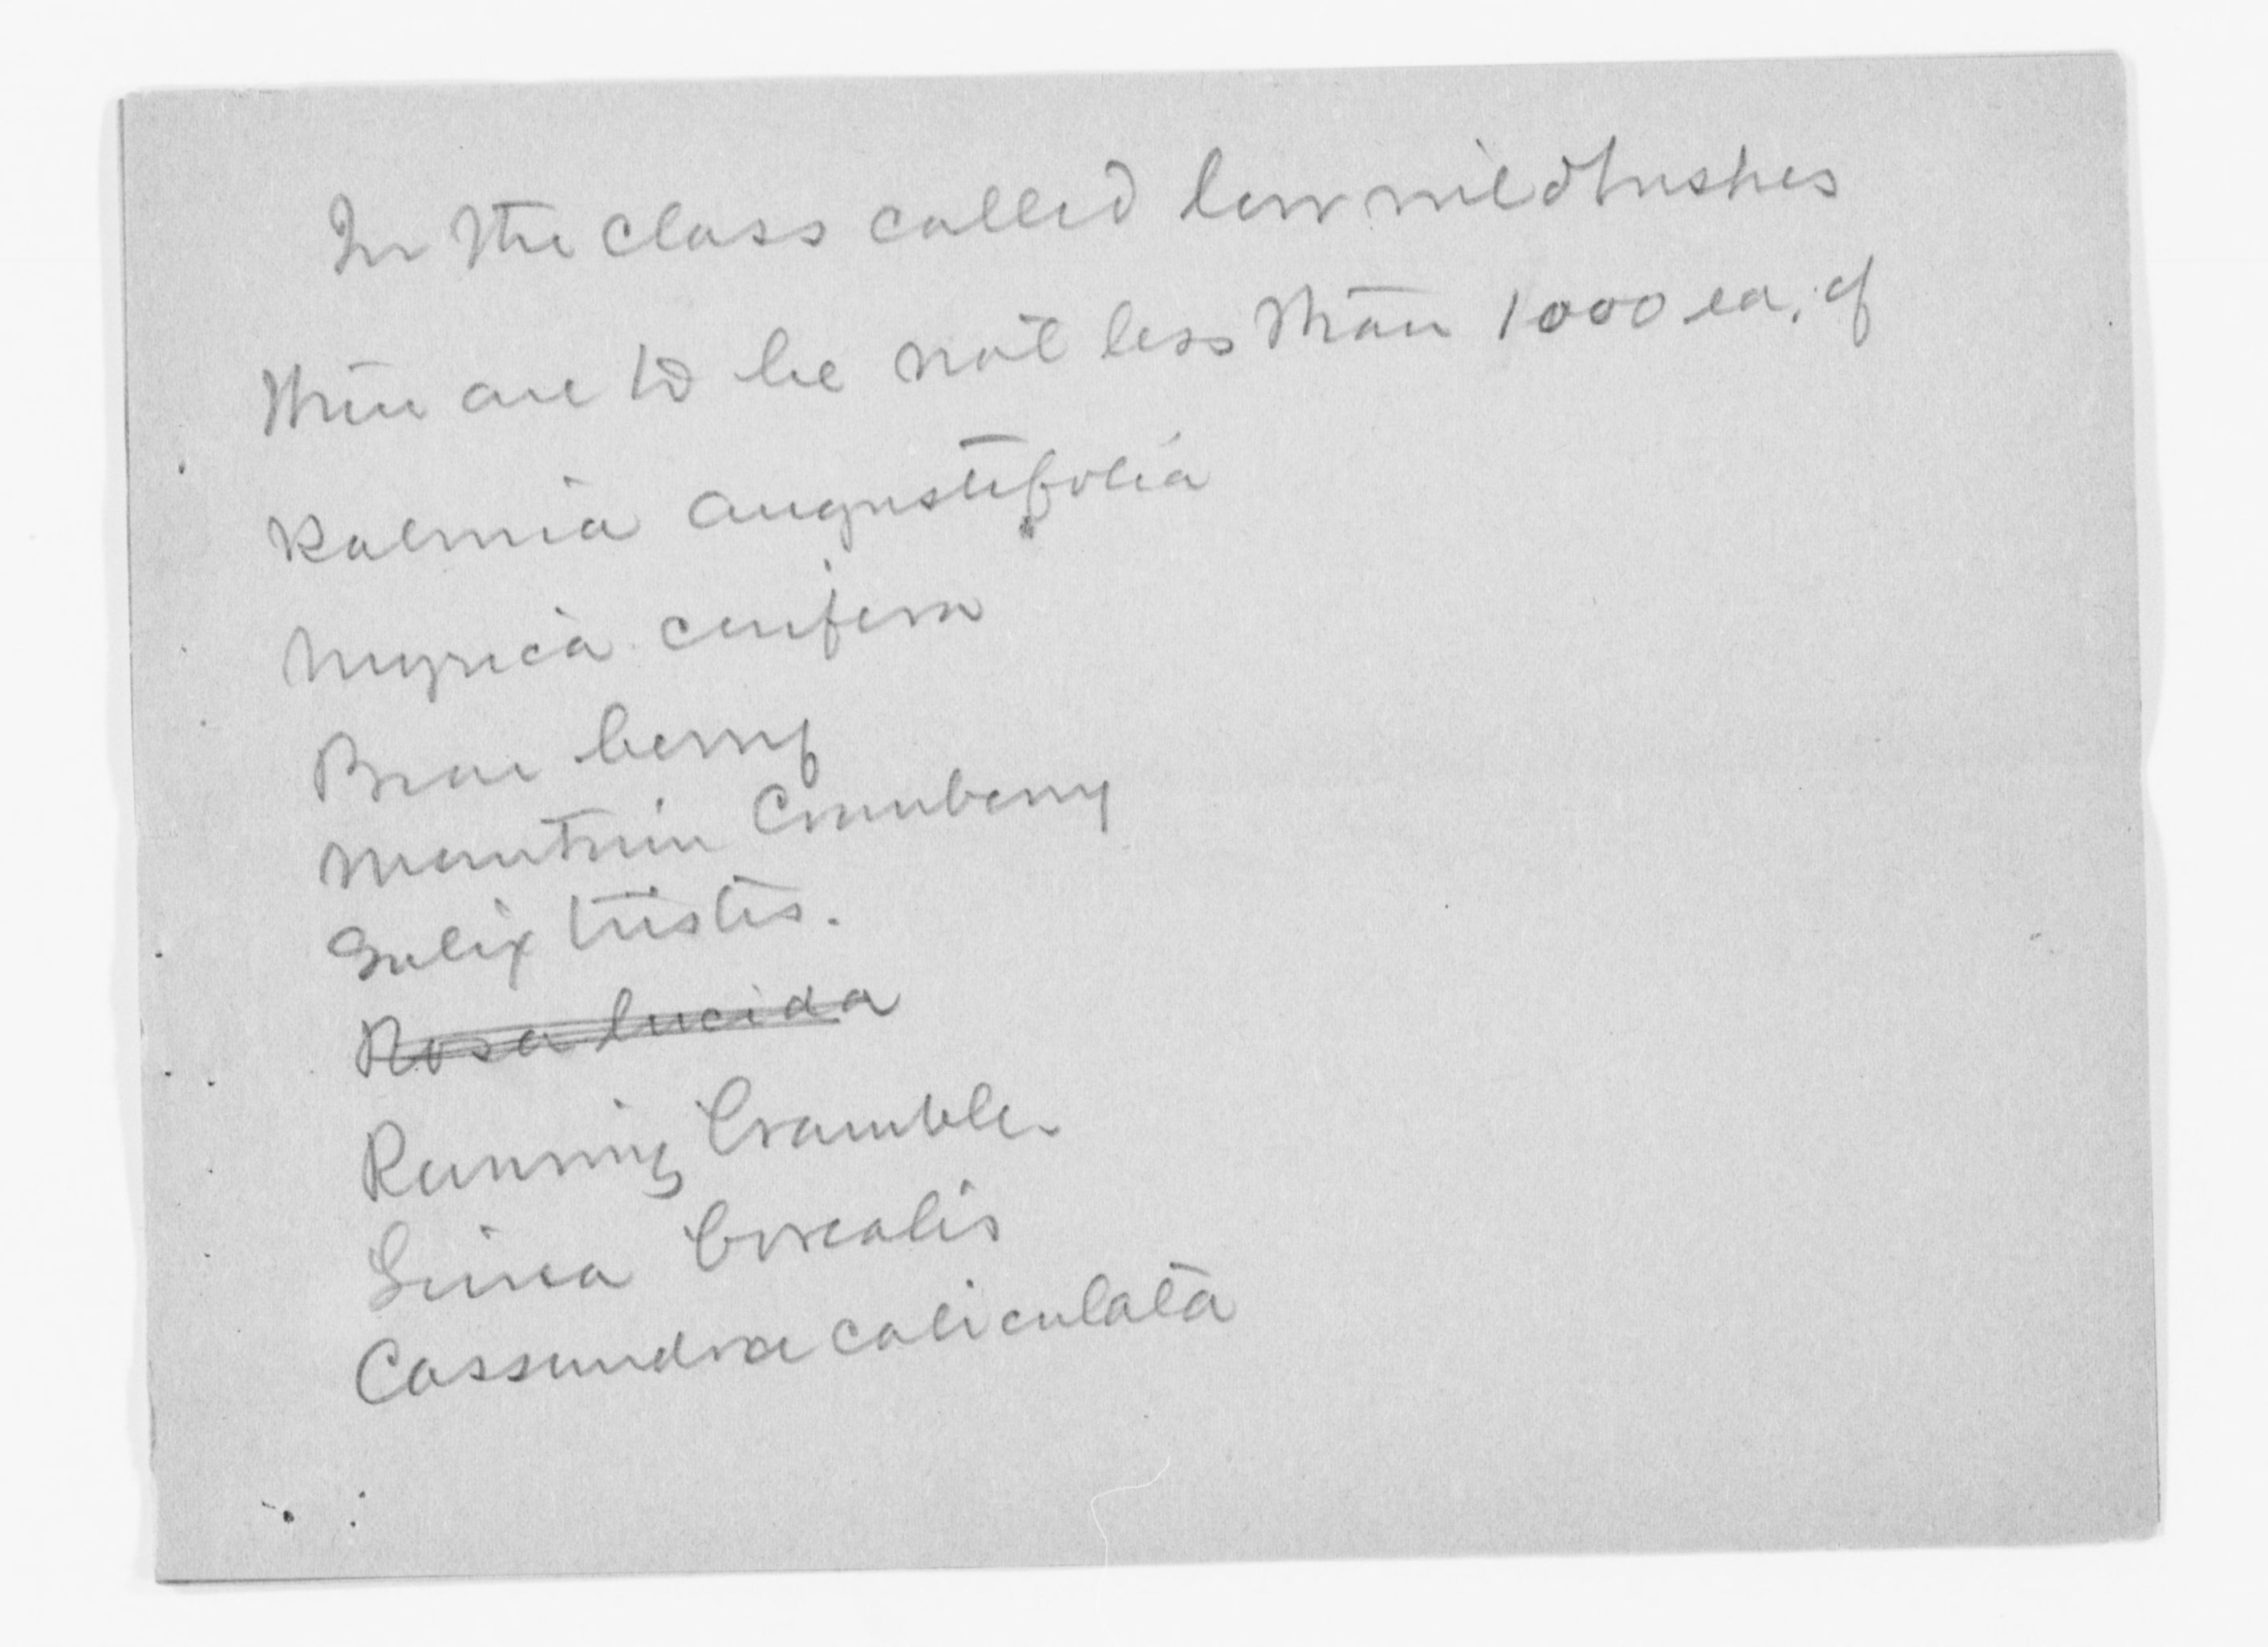 In the class called low wild bushes
there are to be not less than 1000 ea. of
Kalmia angustifolia
Myrica cerifera
Bear berry
Mountain Cranberry
Salix tristis.
Rosa lucida
Running bramble
Linea borealis
Cassandra caliculata